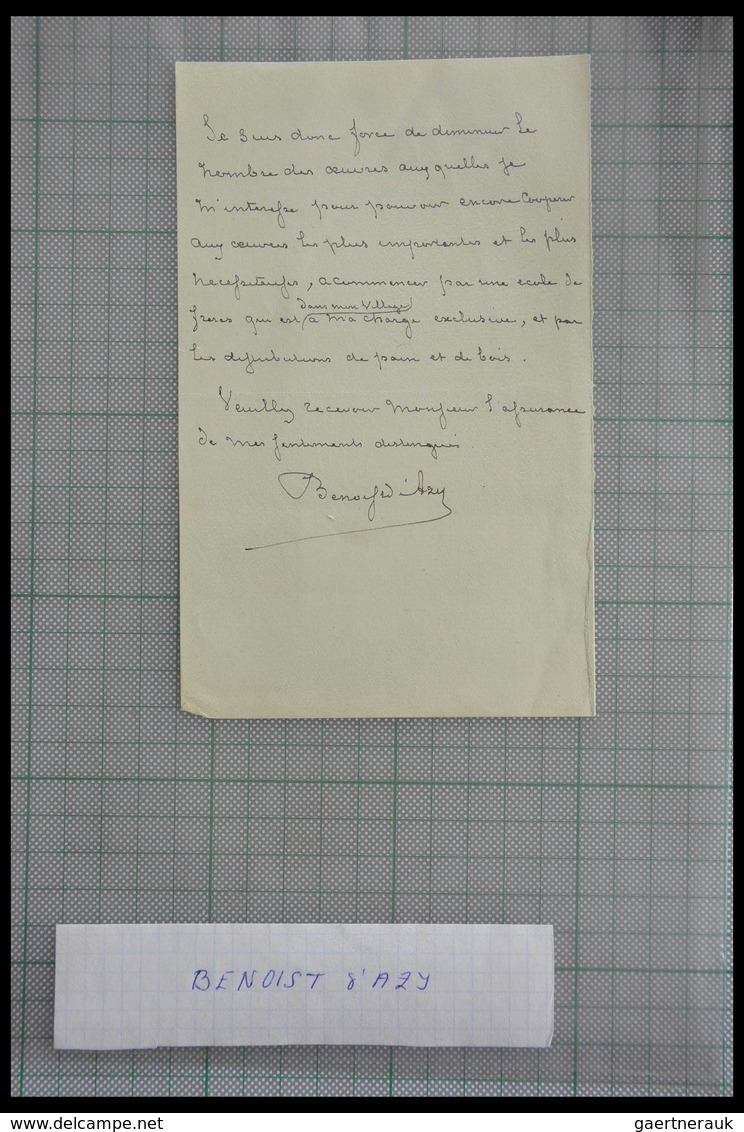 Je suis donc forcé de diminuer le
nombre des œuvres auxquelles je
m'interesse pour pouvoir encore Cooperer
aux œuvres les plus importantes et les plus
necessiteuses, a commencer par une ecole de
dans mon village
freres qui est a ma charge exclusive, et par
les distributions de pain et de bois.
Veuillez recevoir Monsieur l'assurance
de mes sentiments distingués.
Benoist d'Azy
BENOIST d'AZY
gaertnerauk@hotmail.com